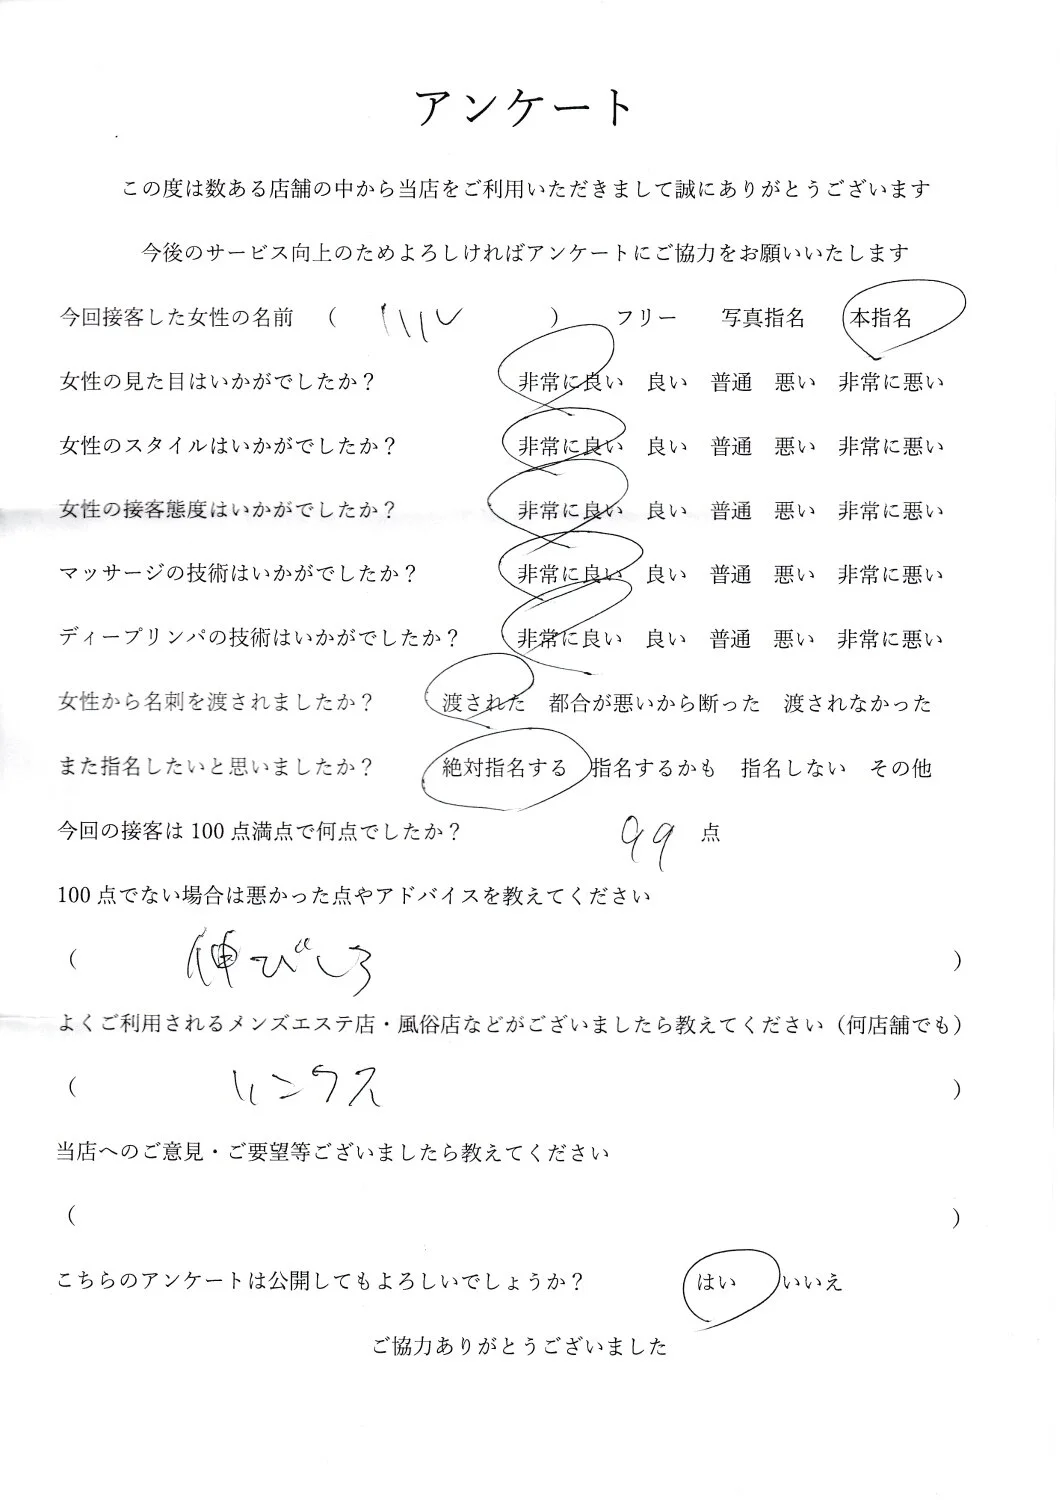 アンケート
この度は数ある店舗の中から当店をご利用いただきまして誠にありがとうございます
今後のサービス向上のためよろしければアンケートにご協力をお願いいたします
今回接客した女性の名前 ( ) フリー 写真指名 本指名
女性の見た目はいかがでしたか？ 非常に良い 良い 普通 悪い 非常に悪い
女性のスタイルはいかがでしたか？ 非常に良い 良い 普通 悪い 非常に悪い
女性の接客態度はいかがでしたか？ 非常に良い 良い 普通 悪い 非常に悪い
マッサージの技術はいかがでしたか？ 非常に良い 良い 普通 悪い 非常に悪い
ディープリンパの技術はいかがでしたか？ 非常に良い 良い 普通 悪い 非常に悪い
女性から名刺を渡されましたか？ 渡された 都合が悪いから断った 渡されなかった
また指名したいと思いましたか？ 絶対指名する 指名するかも 指名しない その他
今回の接客は 100 点満点で何点でしたか？ 99 点
100 点でない場合は悪かった点やアドバイスを教えてください
( 伸びしろ )
よくご利用されるメンズエステ店・風俗店などがございましたら教えてください（何店舗でも）
( リンクス )
当店へのご意見・ご要望等ございましたら教えてください
( )
こちらのアンケートは公開してもよろしいでしょうか？ はい いいえ
ご協力ありがとうございました